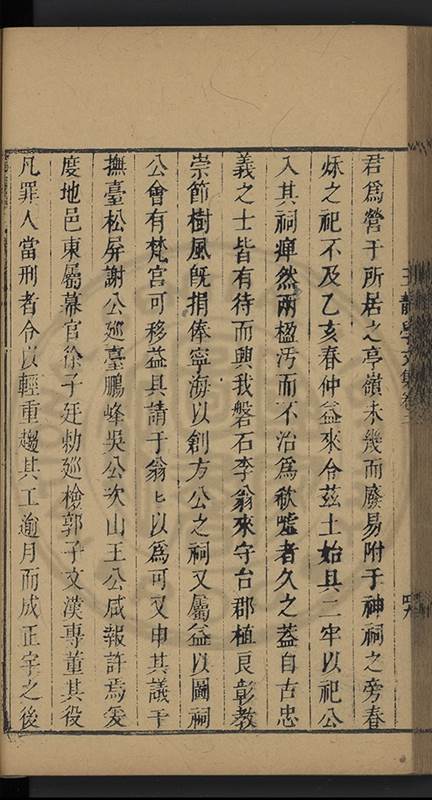 君爲營于所居之亭嶺未幾而廢易附于神祠之旁春
秌之祀不及乙亥春仲益來令茲土始具二牢以祀公
入其祠痺然兩楹汚而不治爲欷噓者久之蓋自古忠
義之士皆有待而興我磐石李翁來守台郡植良彰教
崇節樹風旣捐俸寧海以創方公之祠又屬益以圖祠
公會有梵宮可移益具請于翁匕以爲可又申其議于
撫臺松屏謝公巡臺鵬峰吳公次山王公咸報許焉爰
度地邑東屬幕官徐子廷勑巡檢郭子文漢專董其役
凡罪人當刑者令以輕重趨其工逾月而成正宇之後